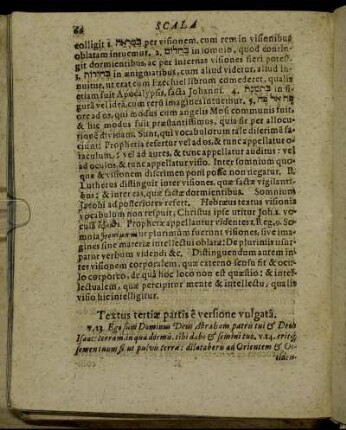 SCALA
colligit 1. בְּמַרְאָה per visionem, cum rem in visionibus
oblatam intuemur. 2. בַּחֲלוֹם in somnio, quod contin-
git dormientibus, ac per internas visiones fieri potest.
3. בְּחִידוֹת in ænigmatibus, cum aliud videtur, aliud in-
nuitur, ut erat cum Ezechiel librum comederet, qualis
etiam fuit Apocalypsis, facta Johanni. 4. בִּתְמֻנָה in fi-
gura vel idea, cum rerum imagines intuemur. 5. פֶּה אֶל פֶּה
ore ad os, qui modus cum angelis Mosi communis fuit,
& hic modus fuit præstantissimus, quia fit per allocu-
tionem dividam. Sunt, qui vocabulorum tale discrimen fa-
ciunt: Prophetia refertur vel ad os, & tunc appellatur o-
raculum, : vel ad aures, & tunc appellatur auditus : vel
ad oculos, & tunc appellatur visio. Inter somnium quo-
que & visionem discrimen poni posse non negatur. B.
Lutherus distinguit inter visiones, quæ factæ vigilanti-
bus; & inter eas, quæ factæ dormientibus. Somnium
Jacobi ad posteriores refert. Hebræus textus visionis
vocabulum non respuit, Christus ipse utitur Joh. 1.
Prophetæ appellantur videntes. 1. Reg. 9. So-
mnia plurimum fuerunt visiones, sive ima-
gines sine materiæ intellectui oblatæ: De plurimis usur-
patur verbum videndi &c. Distinguendum autem in-
ter visionem corporalem, quæ externo sensu fit & ocu-
lo corporeo, de qua hoc loco non est quæstio: & intel-
lectualem, quæ percipitur mente & intellectu, qualis
visio hic intelligitur.
Textus tertiæ partis è versione vulgatâ.
v. 13. Ego sum Dominus Deus Abraham patris tui & Deus
Isaac: terram in qua dormis, tibi dabo & semini tuo, v. 14. eritq;
semen tuum sicut pulvis terræ: dilataberis ad Orientem & Oc-
ciden-